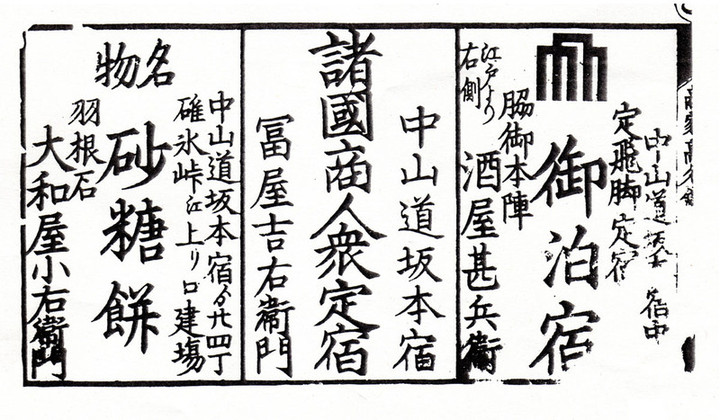 中山道坂本宿中
定飛脚定宿
御泊宿
脇御本陣
江戸より
右側
酒屋甚兵衛
中山道坂本宿
諸國商人衆定宿
冨屋吉右衛門
中山道坂本宿ゟ廿四丁
碓氷峠江上り口建場
名物
砂糖餅
羽根石
大和屋小右衛門